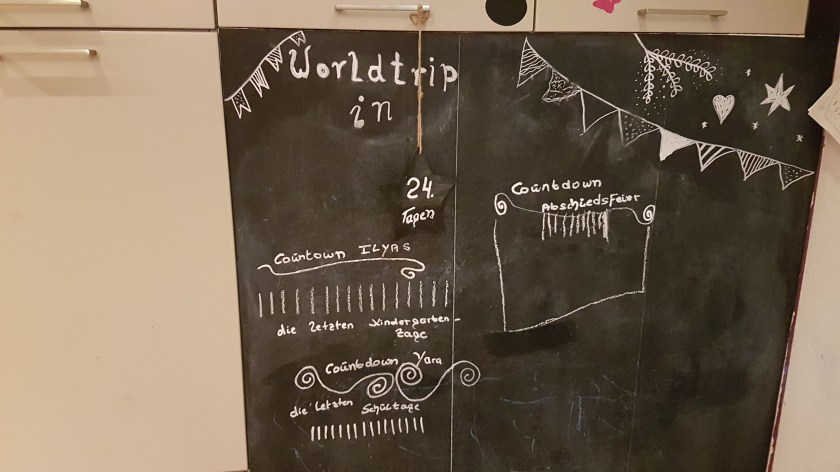 Worldtrip
in
24.
Tagen
Countown ILYAS
die letzten Kindergarten-
tage
Countdown Yara
die letzten Schultage
Countdown
AbschiedsFeier